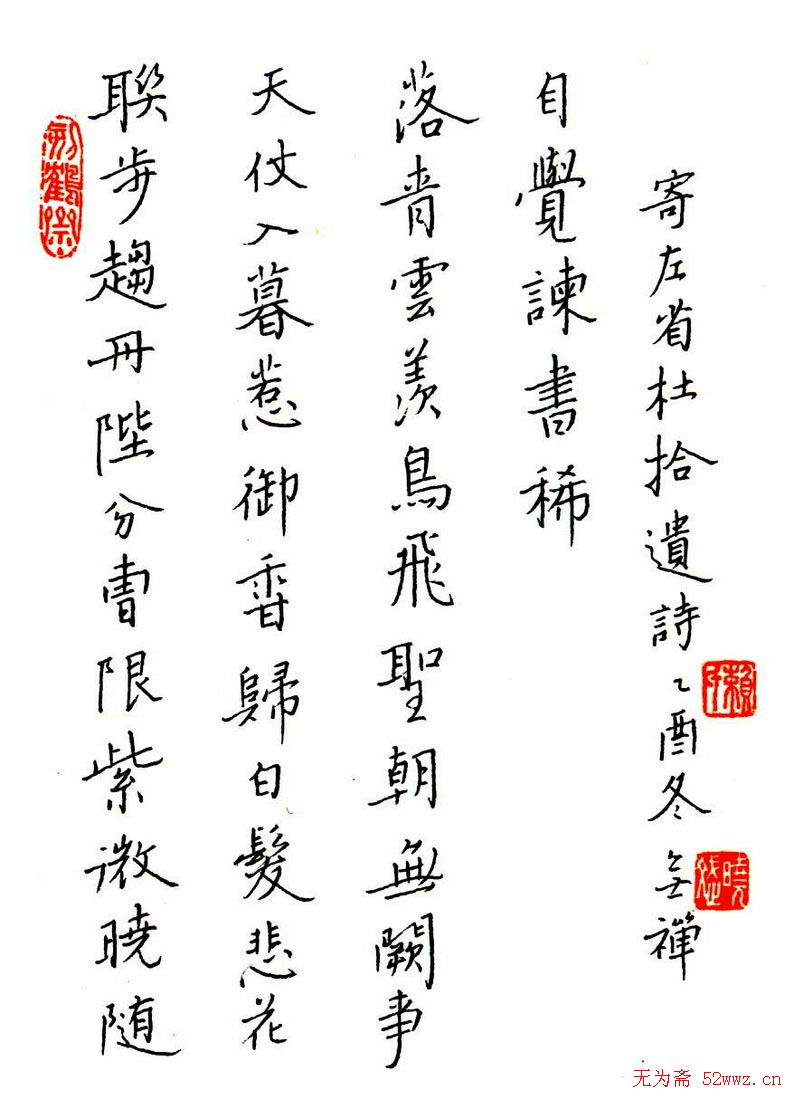 聯步趨丹陛分曹限紫微曉随
天仗入暮惹御香歸白髮悲花
落青雲羨鳥飛聖朝無闕事
自覺諫書稀
寄左省杜拾遺詩乙酉冬 禪
无为斋 52wwz.cn